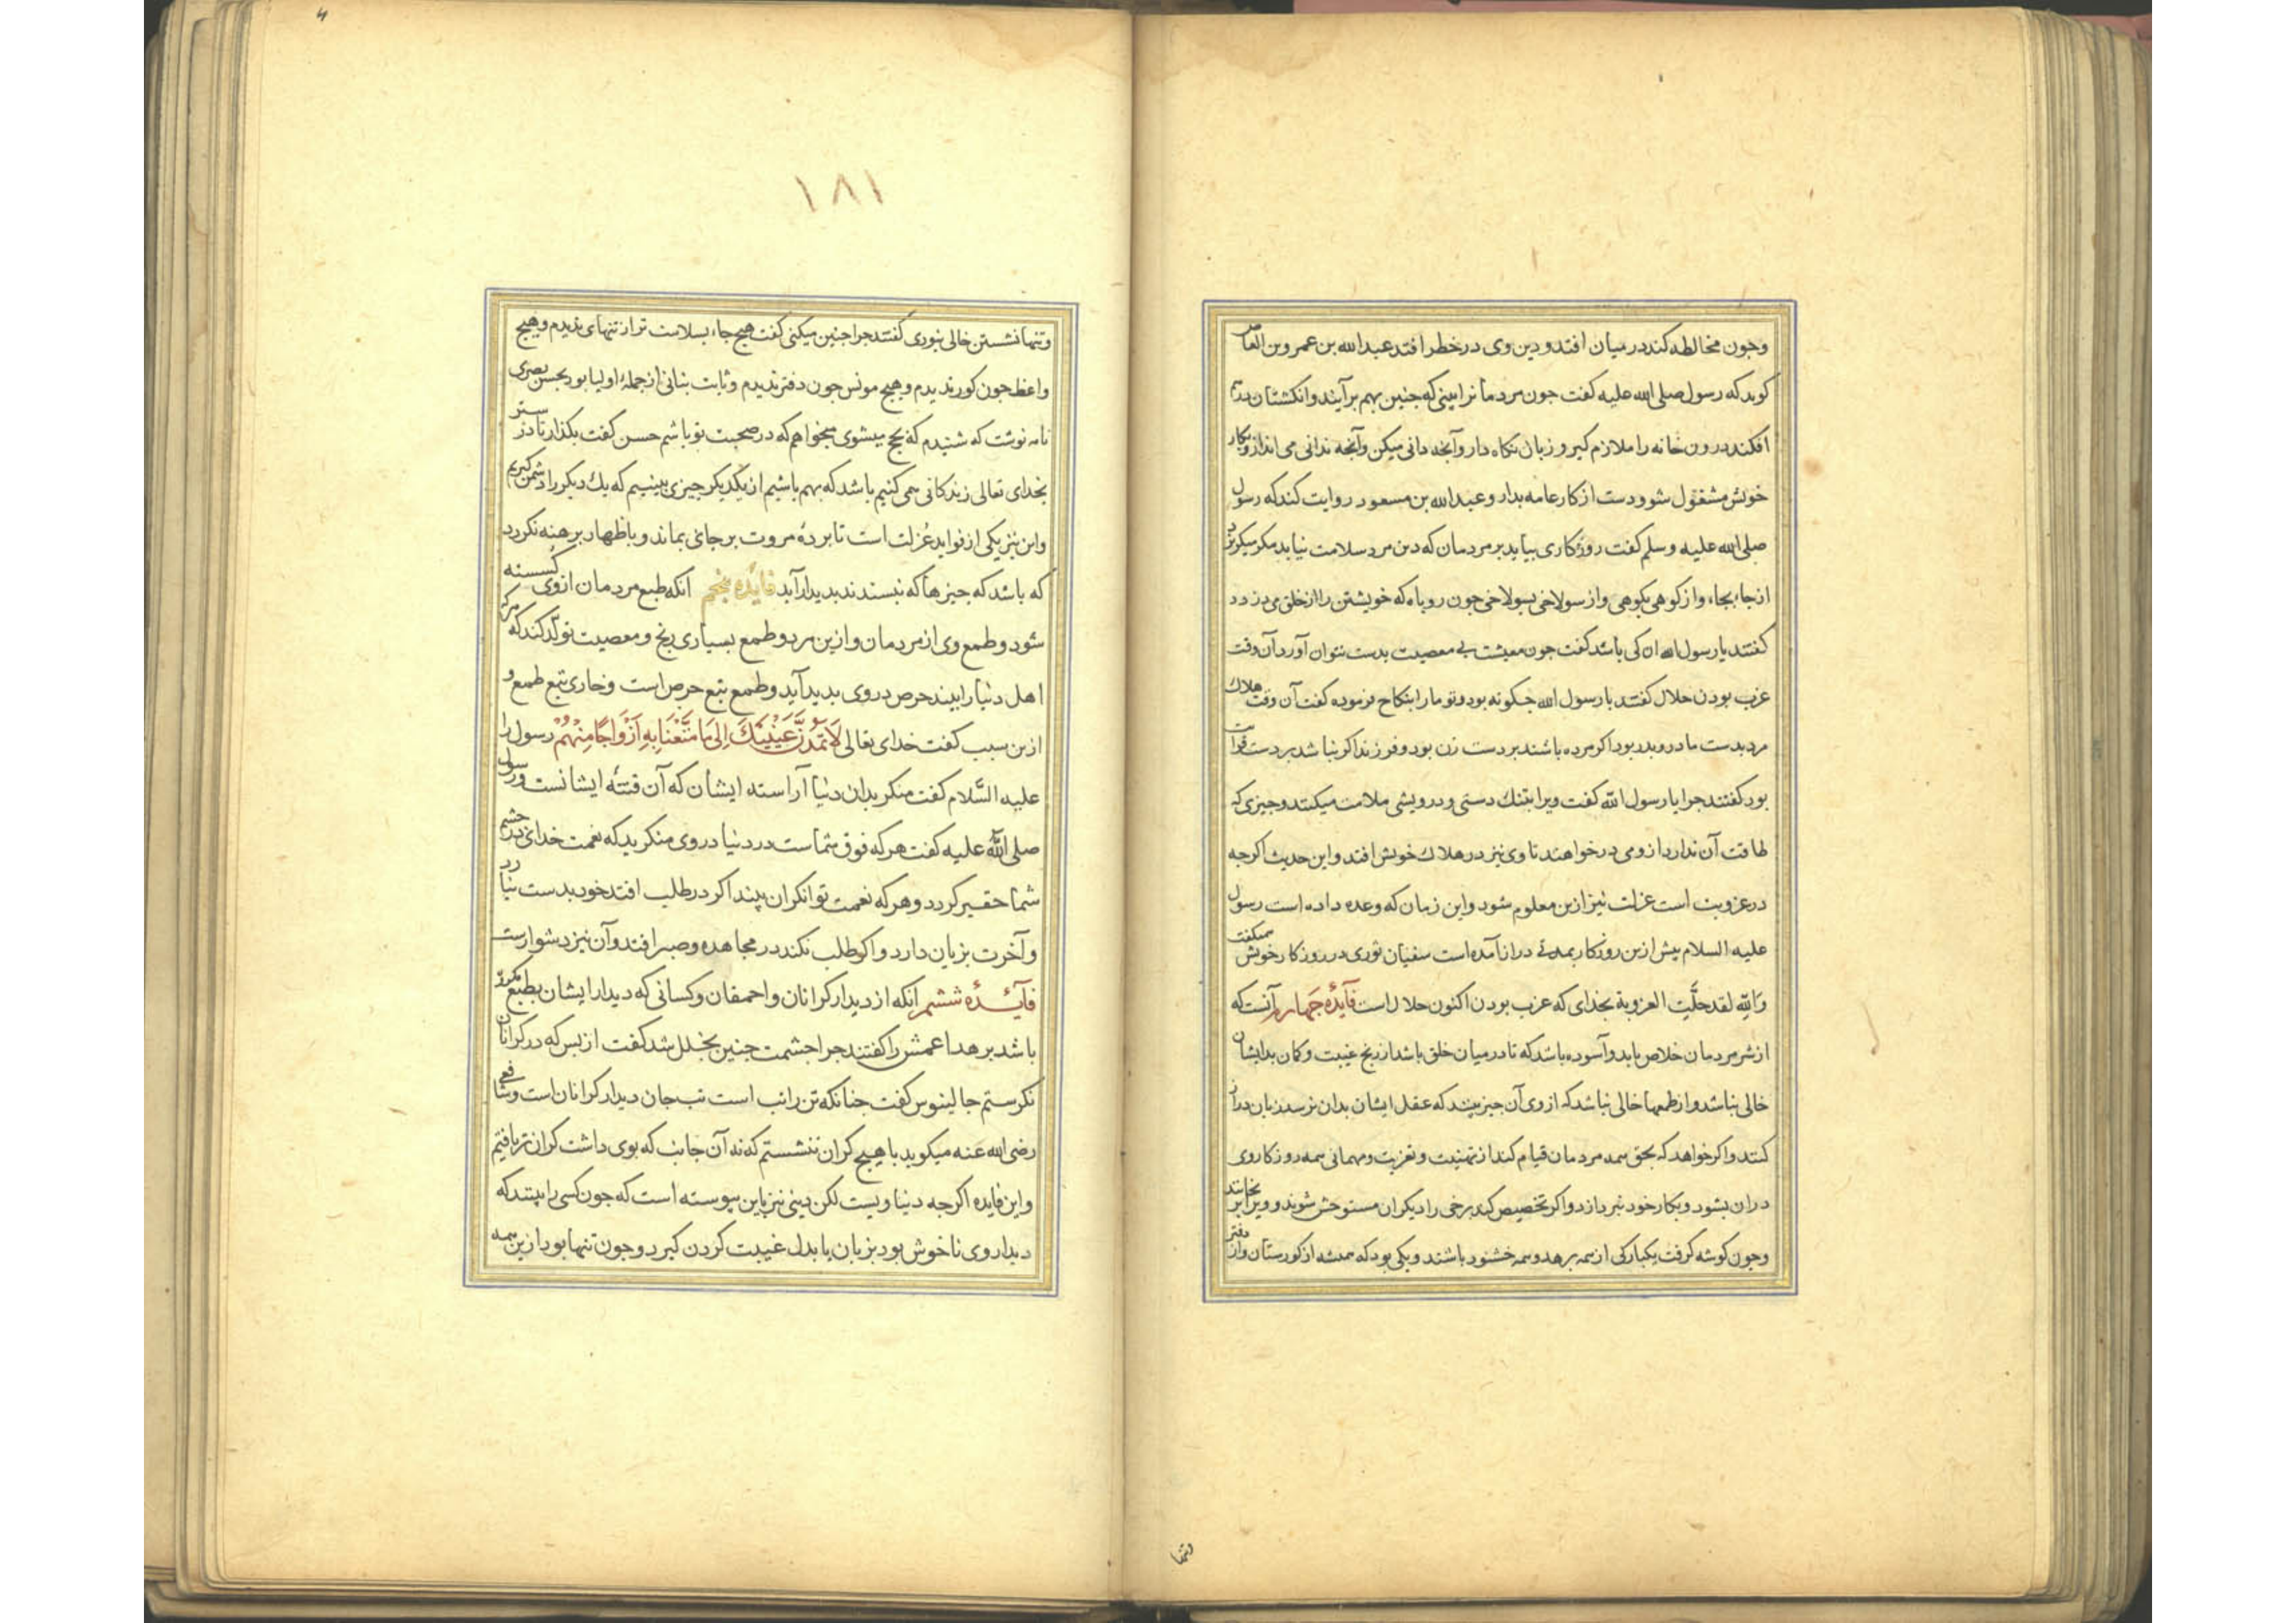 وجون مخالطه کند در میان افتد و دین وی در خطر افتد عبدالله بن عمرو بن العاص
کوید که رسول صلی الله علیه کفت جون مردمانرا بینی که جنین بهم برآیند و انکشتان درهم
افکند درون خانه را ملازم کیر و زبان نکاه دار و آنجه دانی میکن و آنجه ندانی می انداز و بکار
خویش مشغول شو و دست از کار عامه بدار و عبدالله بن مسعود روایت کند که رسول
صلی الله علیه وسلم کفت روزکاری بیاید بر مردمان که دین مرد سلامت نیابد مکر میکریزد
از جاء بجاء و از کوهی بکوهی و از سولاخی بسولاخی جون روباه که خویشتن را از خلق می دزدد
کفتند یا رسول الله ان کی باشد کفت جون معیشت بی معصیت بدست نتوان آورد آن وقت
عزب بودن حلال کفتند یا رسول الله جکونه بود و تو ما را بنکاح فرموده کفت آن وقت هلاك
مرد بدست مادر و بدر بود اکر مرده باشند بر دست زن بود و فرزند اکر نباشد بر دست قرابت
بود کفتند جرا یا رسول الله کفت ویرا بتنك دستی و درویشی ملامت میکنند و جیزی که
طاقت آن ندارد ازو می درخواهند تا وی نیز در هلاك خویش افتد و این حدیث اکرجه
در عزوبت است عزلت نیز ازین معلوم شود و این زمان که وعده داده است رسول
علیه السلام بیش ازین روزکار بمدتی دراز آمده است سفیان ثوری در روزکار خویش میکفت
وَاللهِ لقد حلَّتِ العزوبة بخدای که عزب بودن اکنون حلال است فآیدۀ جَهارم آنست که
از شر مردمان خلاص یابد و آسوده باشد که تا در میان خلق باشد از رنج غیبت و کمان بد ایشان
خالی نباشد و از طمعها خالی نباشد که از وی آن جیز بینند که عقل ایشان بدان نرسد زبان دراز
کنند و اکر خواهد که بحق همه مردمان قیام کند از تهنیت و تعزیت و مهمانی همه روزکار وی
دران بشود و بکار خود نبردازد و اکر تخصیص کند برخی را دیکران مستوحش شوند و ویرا برنجانند
وجون کوشه کرفت یکبارکی از همه برهد و همه خشنود باشند و یکی بود که همیشه از کورستان و از دفتر
وتنها
۱۸۱
وتنها نشستن خالی نبودی کفتند جرا جنین میکنی کفت هیج جاء بسلامت تر از تنهای ندیدم و هیج
واعظ جون کور ندیدم و هیج مونس جون دفتر ندیدم و ثابت بنانی از جملۀ اولیا بود بحسن بصری
نامه نوشت که شنیدم که بحج میشوی میخواهم که در صحبت تو باشم حسن کفت بکذار تا در ستر
بخدای تعالی زندکانی می کنیم باشد که بهم باشیم از یکدیکر جیزی بینیم که یك دیکر را دشمن کیریم
واین نیز یکی از فواید عُزلت است تا بردۀ مروت بر جای بماند و باظهار برهنه نکردد
که باشد که جیزها که نبسندند بدیدار آید فایَدۀ بنجم انکه طبع مردمان ازوی کُسسته
شود و طمع وی از مردمان و ازین مرد و طمع بسیاری رنج و معصیت تولّد کند که هرکه
اهل دنیا را بیند حرص دروی بدید آید و طمع تبع حرص است و خاری تبع طمع و
ازین سبب کفت خدای تعالی لَا تَمُدَّنَّ عَیْنَیْكَ اِلیٰ مَا مَتَّعْنَا بِهِ اَزْوَاجًا مِنْهُمْ رسول را
علیه السَّلام کفت منکر بدان دنیا آراسته ایشان که آن فتنۀ ایشانست ورسول
صلی الله علیه کفت هرکه فوق شماست در دنیا دروی منکرید که نعمت خدای در جشم
شما حقیر کردد و هرکه نعمت توانکران بیند اکر در طلب افتد خود بدست نیارد
و آخرت بزیان دارد و اکر طلب نکند در مجاهده و صبر افتد و آن نیز دشوارست
فآئدۀ ششم انکه از دیدار کرانان و احمقان و کسانی که دیدار ایشان بطبع مکروه
باشد برهد اعمش را کفتند جرا جشمت جنین بخلل شد کفت از بس که در کرانان
نکرستم جالینوس کفت جنانکه تن را تب است تب جان دیدار کرانان است و شافعی
رضی الله عنه میکوید با هیج کران ننشستم که نه آن جانب که بوی داشت کران تر یافتم
واین فایده اکرجه دنیاویست لکن دینی نیز باین بیوسته است که جون کسی را بیند که
دیدار وی ناخوش بود بزبان یا بدل غیبت کردن کیرد و جون تنها بود ازین همه